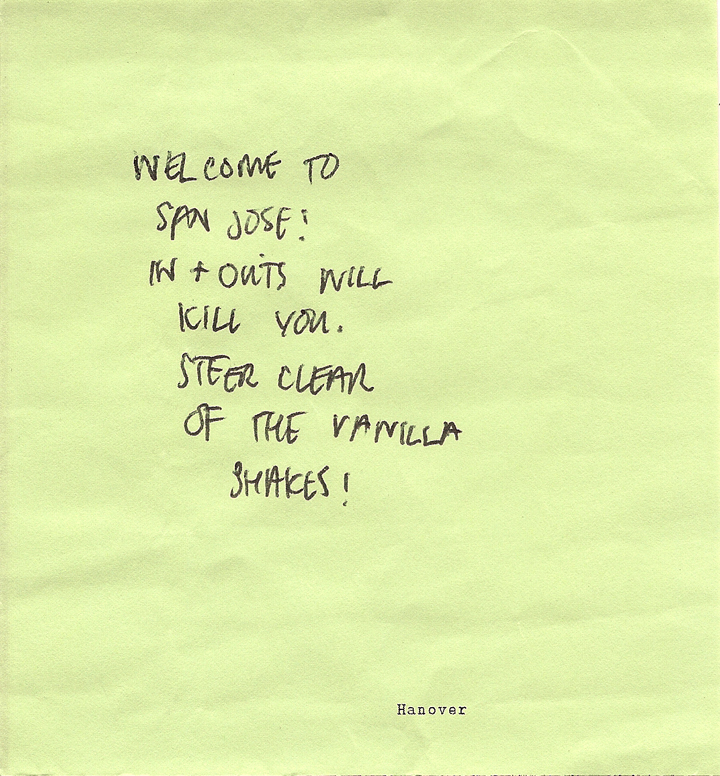 WELCOME TO
SAN JOSE!
IN + OUTS WILL
KILL YOU.
STEER CLEAR
OF THE VANILLA
SHAKES!
Hanover